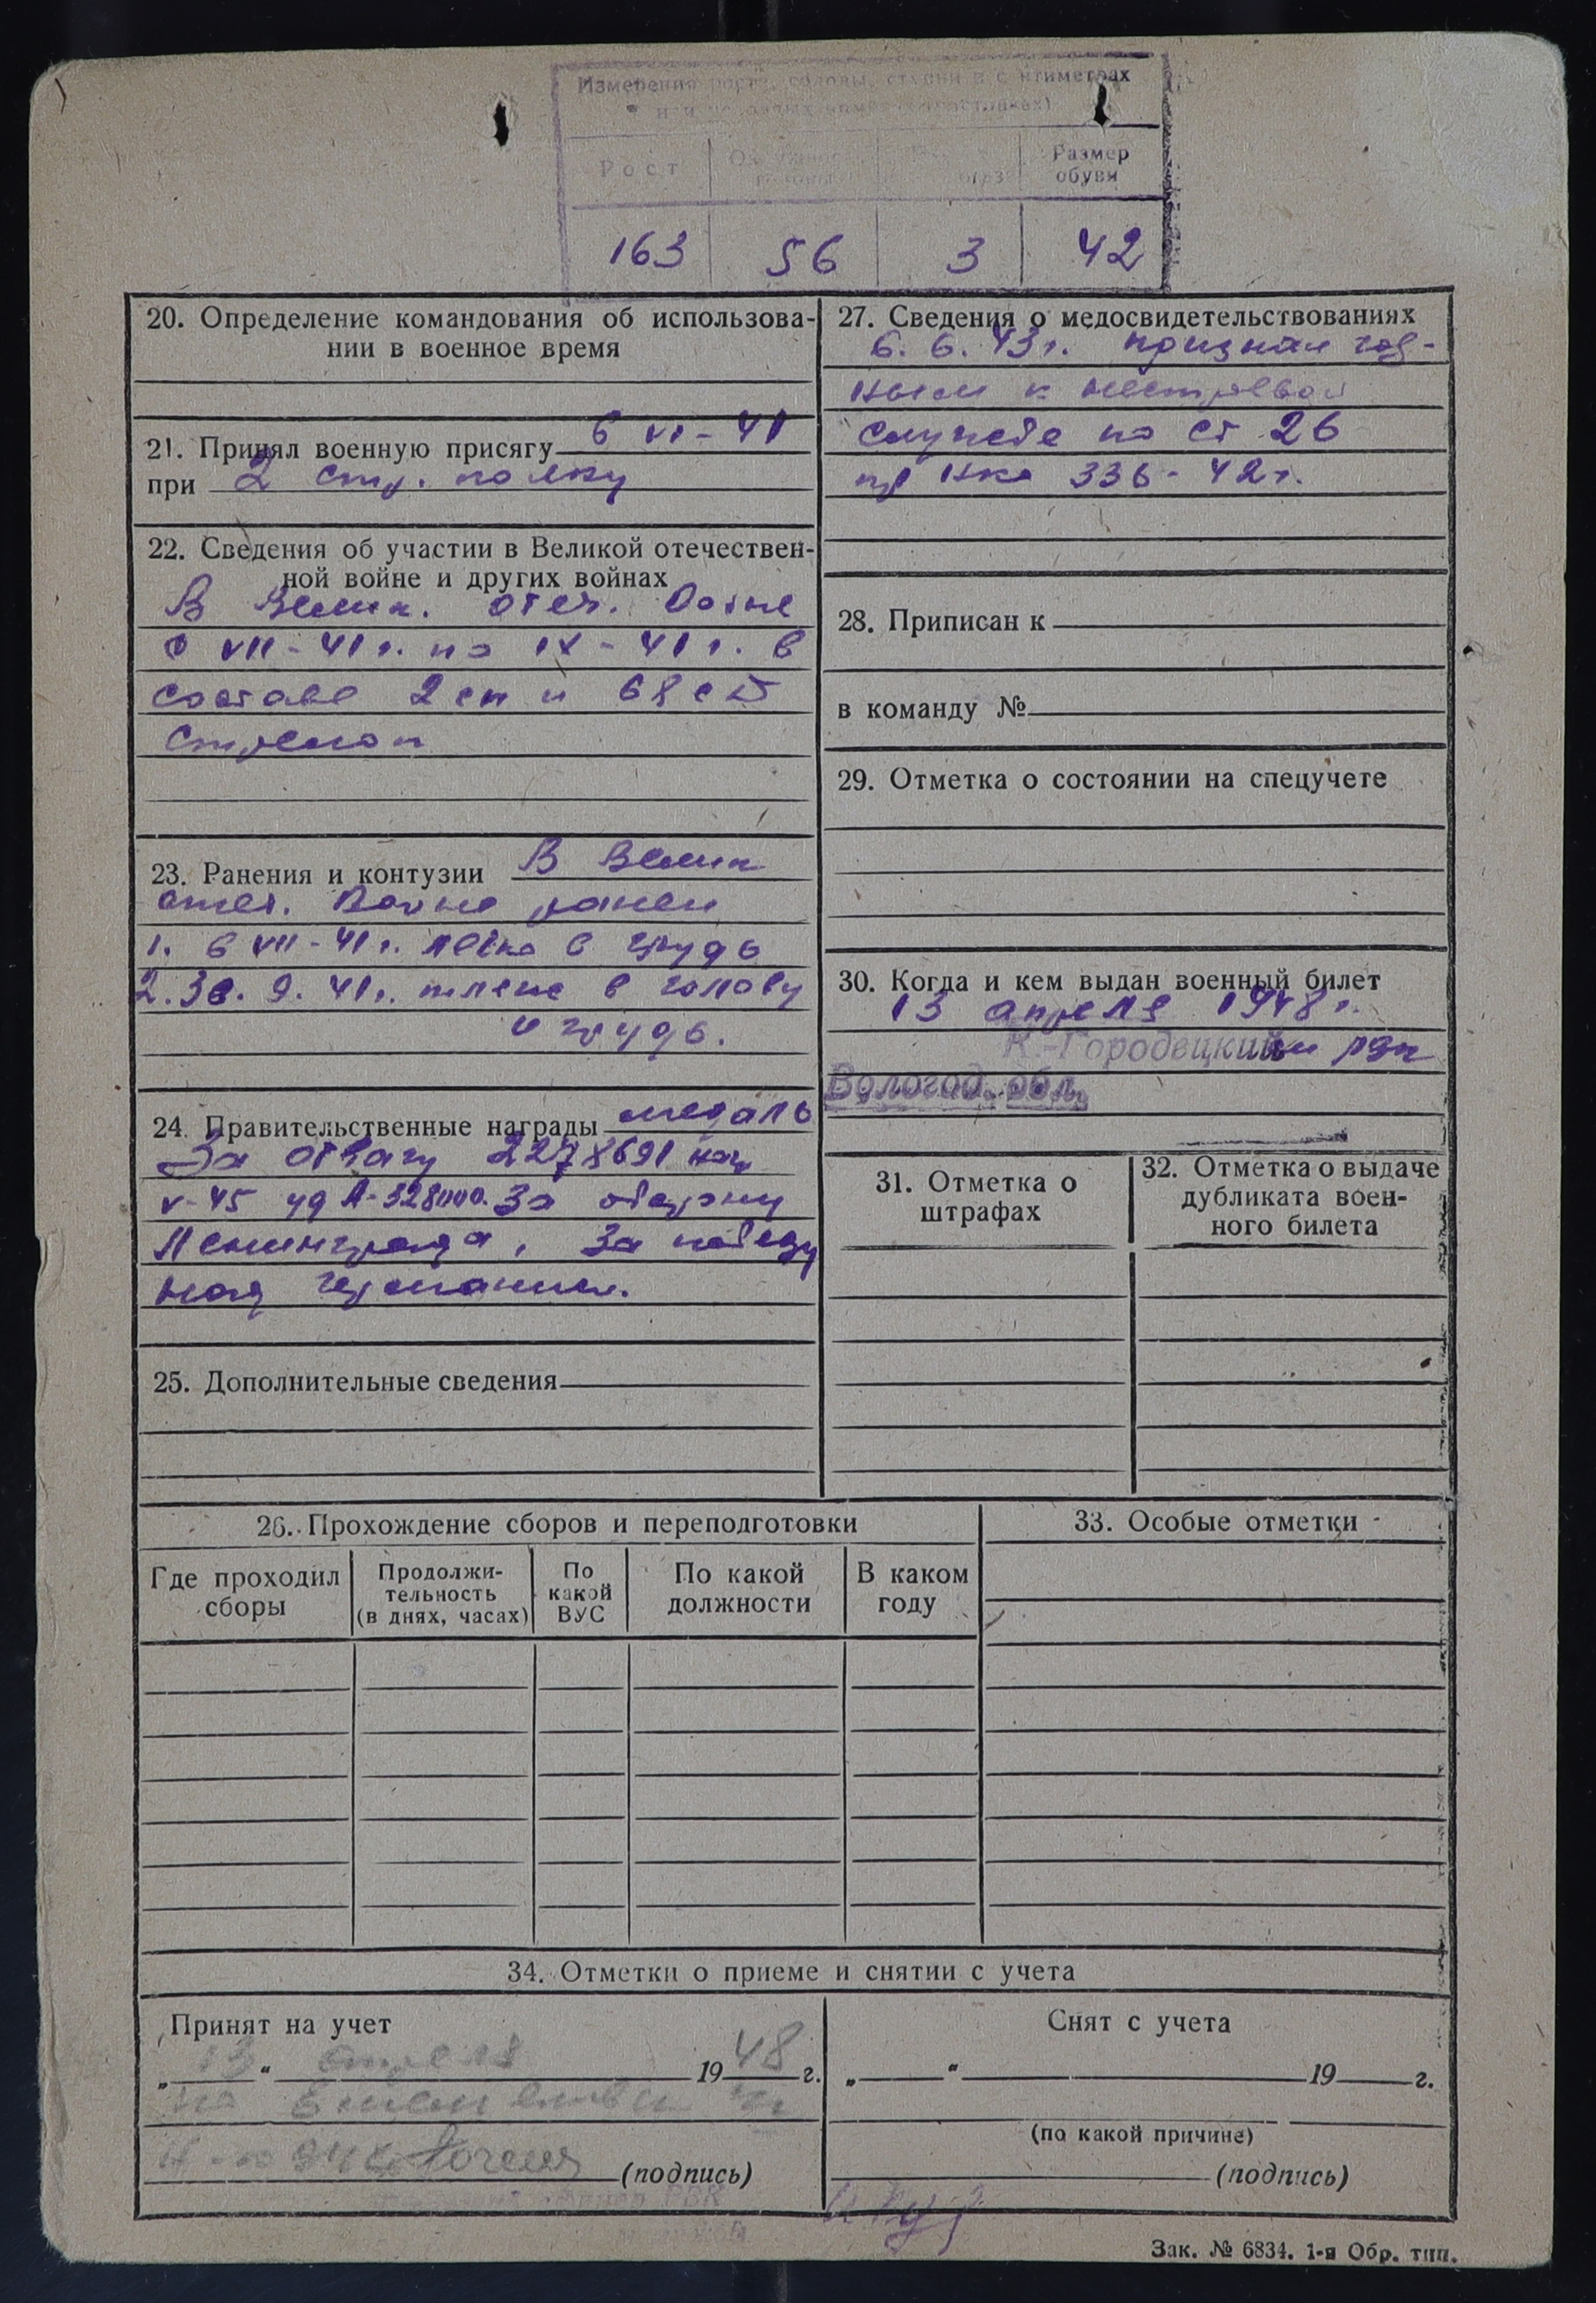 Измерения роста, головы, ступни в сантиметрах
Рост
Размер
обуви
163 56 3 42
20. Определение командования об использова-
нии в военное время
21. Принял военную присягу 6 VI - 41
при 2 стр. полку
22. Сведения об участии в Великой отечествен-
ной войне и других войнах
В Велик. отеч. Войне
с VII - 41 г. по IX - 41 г. в
составе 2 сп и 68 сд
стрелок
23. Ранения и контузии В Велик
отеч. Войне ранен
1. 6 VII - 41 г. легко в грудь
2. 30. 9. 41 г. тяжело в голову
и грудь.
24. Правительственные награды медаль
За отвагу 2278691
V-45 уд А-328000. За оборону
Ленинграда, За победу
над германией.
25. Дополнительные сведения
27. Сведения о медосвидетельствованиях
6. 6. 43 г. признан год-
ным к нестроевой
службе по ст 26
пр Нко 336 - 42 г.
28. Приписан к
в команду №
29. Отметка о состоянии на спецучете
30. Когда и кем выдан военный билет
13 апреля 1948 г.
К.-Городецким рвк
Вологод. обл.
31. Отметка о
штрафах
32. Отметка о выдаче
дубликата воен-
ного билета
26. Прохождение сборов и переподготовки
Где проходил
сборы
Продолжи-
тельность
(в днях, часах)
По
какой
ВУС
По какой
должности
В каком
году
33. Особые отметки
34. Отметки о приеме и снятии с учета
Принят на учет
„ 13 “ апреля 1948 г.
(подпись)
Снят с учета
„ “ 19 г.
(по какой причине)
(подпись)
Зак. № 6834. 1-я Обр. тип.